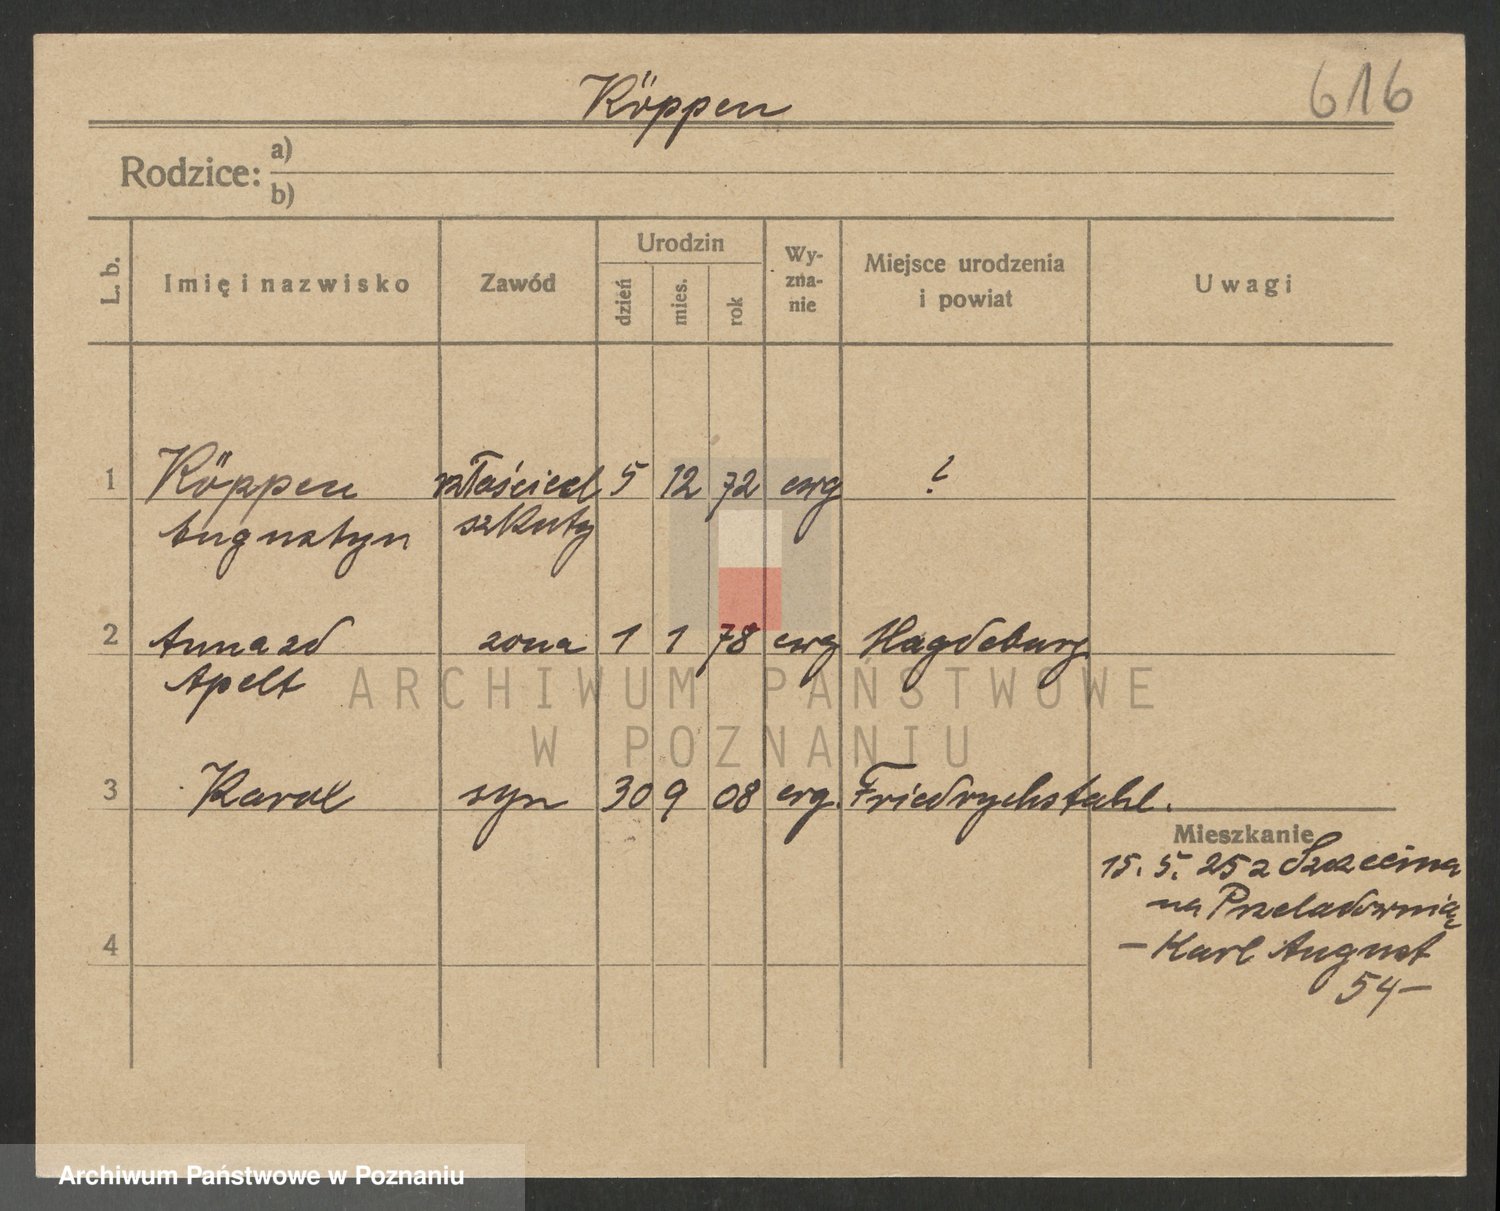 Köppen
616
Rodzice: a)
b)
L. b.
Imię i nazwisko
Zawód
Urodzin
dzień
mies.
rok
Wy-
zna-
nie
Miejsce urodzenia
i powiat
Uwagi
1 Köppen właściciel 5 12 72 ewg ?
Augustyn szkuty
2 Anna zd żona 1 1 78 ewg Magdeburg
Apelt
ARCHIWUM PAŃSTWOWE
W POZNANIU
3 Karol syn 30 9 08 ewg. Friedrychstahl.
Mieszkanie
15. 5. 25 z Szczecina
na Przeładownią
4
– Karl August
54 –
Archiwum Państwowe w Poznaniu